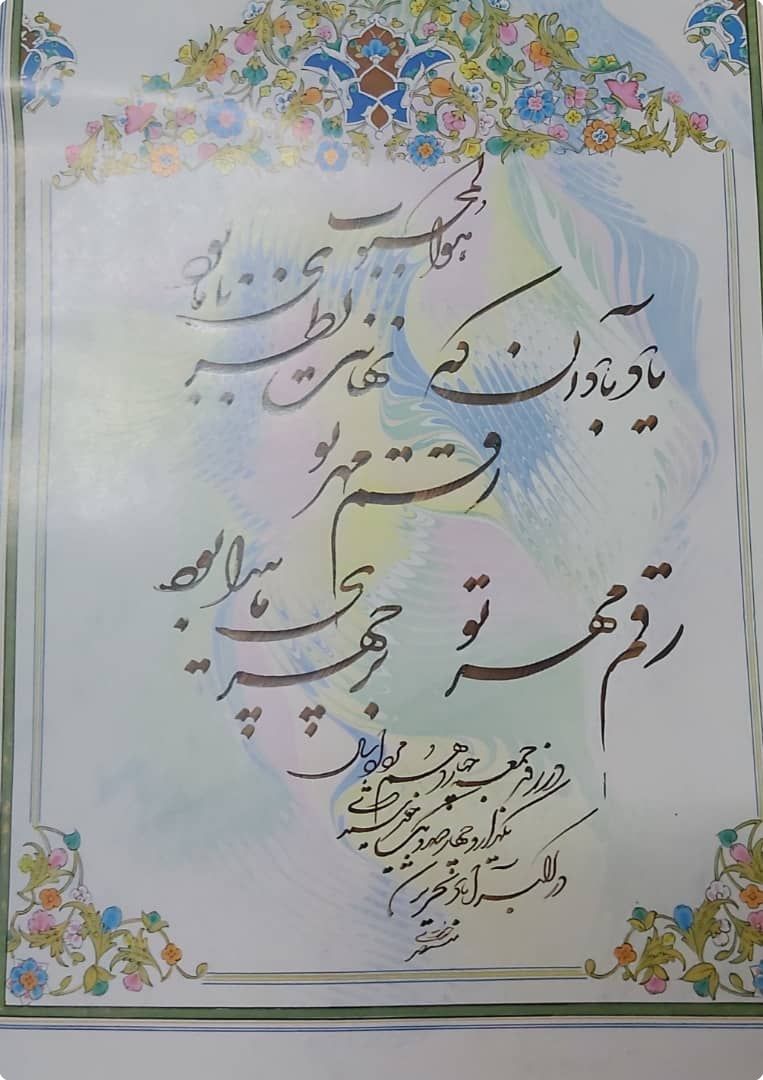 هوالمحبوب
یاد باد آن که نهانت نظری با ما بود
رقم مهر تو
رقم مهر تو بر چهره‌ی ما پیدا بود
در روز جمعه چهاردهم مرداد سال
یکهزار و چهارصد و یک خورشیدی
در اکبرآباد تحریر